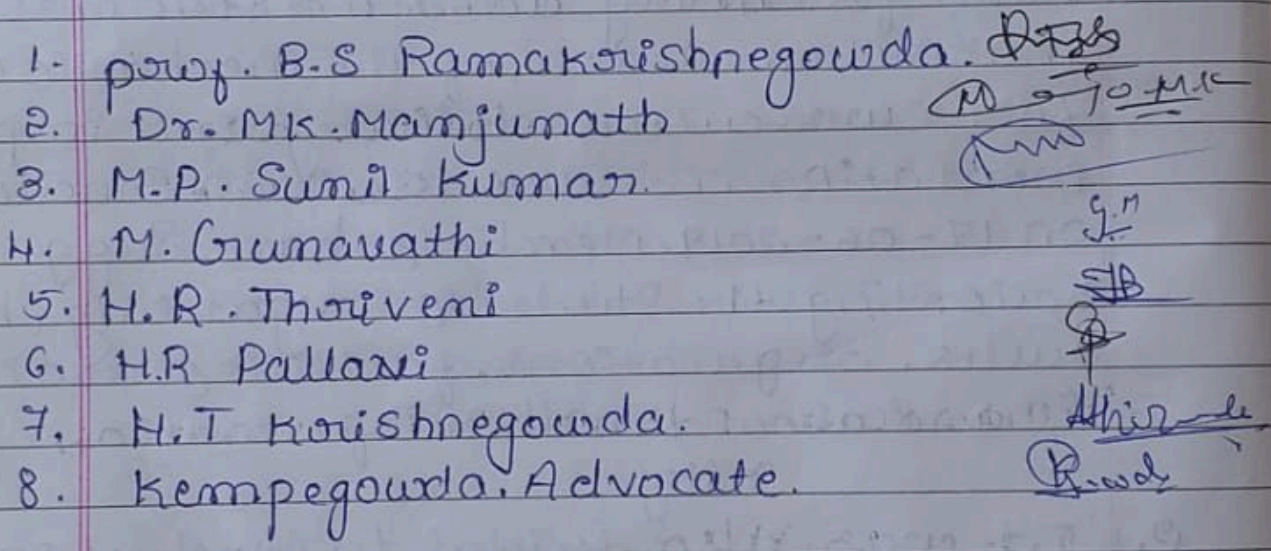 1. prof. B.S Ramakrishnegowda.
2. Dr. MK. Manjunath
3. M.P. Sunil Kumar.
4. M. Gunavathi G.M
5. H.R. Thriveni
6. H.R Pallavi
7. H.T Krishnegowda.
8. Kempegowda. Advocate.